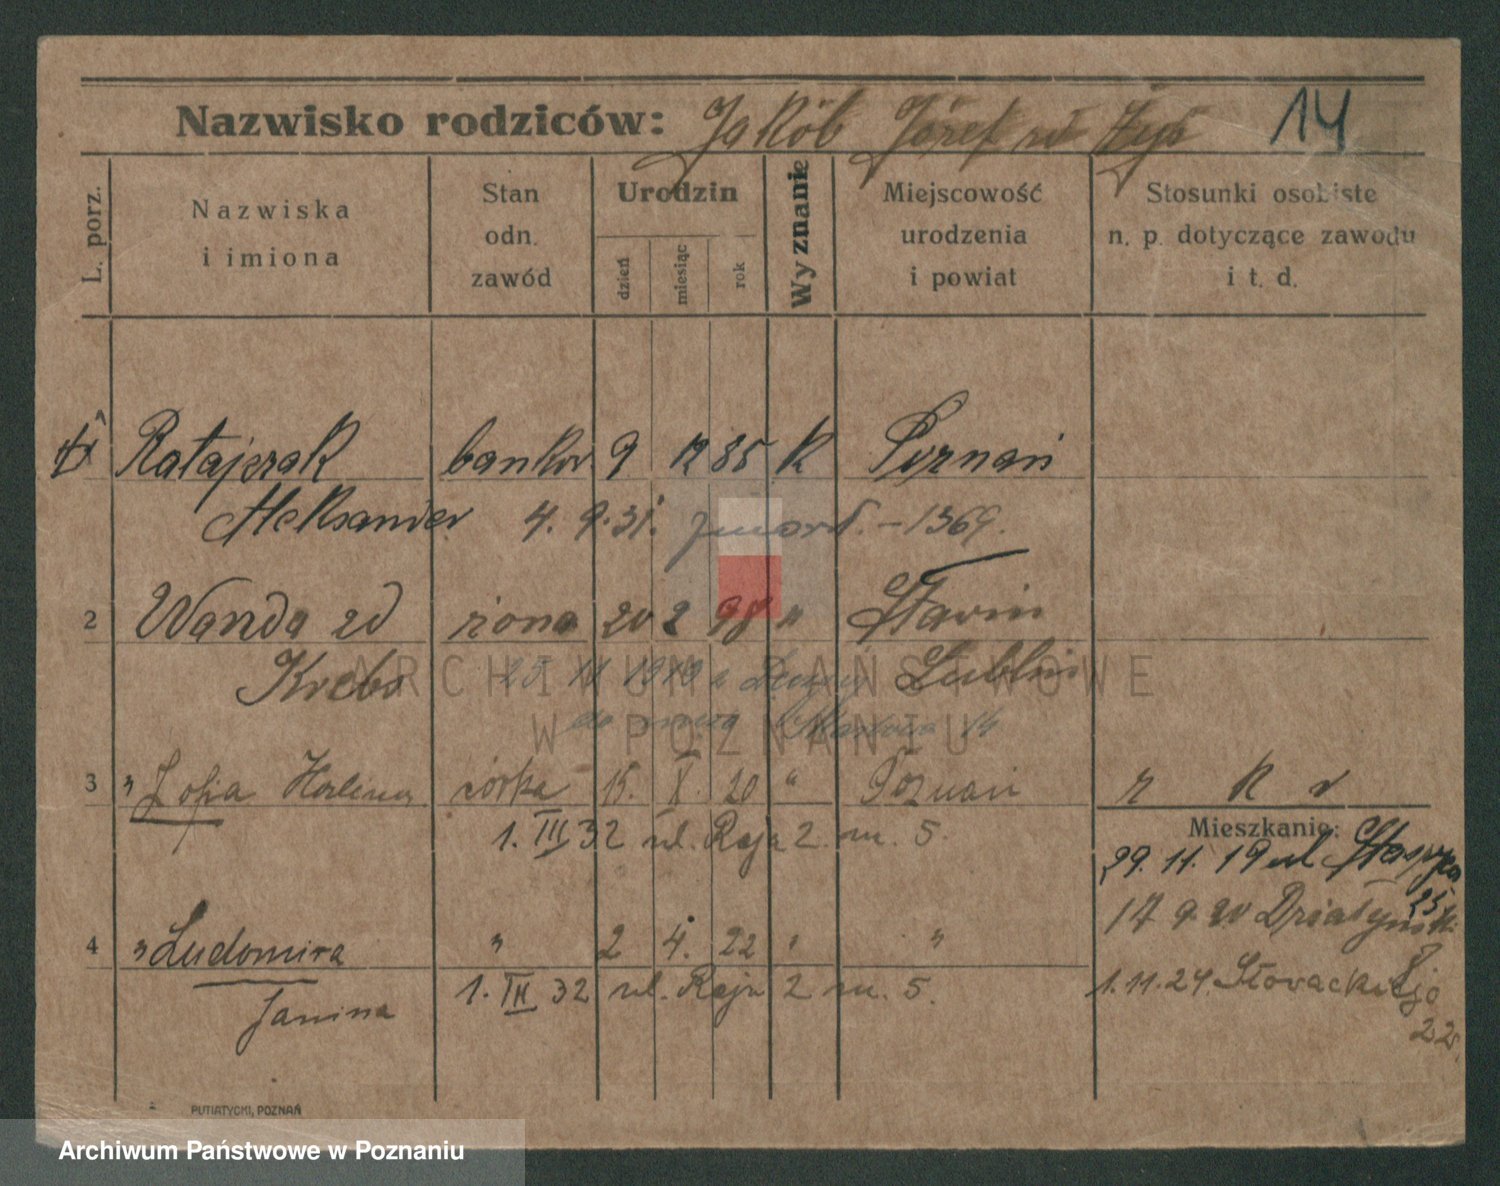 Nazwisko rodziców: Jakób Józef 14
L. porz.
Nazwiska i imiona
Stan odn. zawód
Urodzin
dzień miesiąc rok
Wyznanie
Miejscowość urodzenia i powiat
Stosunki osobiste n. p. dotyczące zawodu i t. d.
Ratajczak bankow. 9 12 85 k Poznań
Aleksander 4. 9. 31. zmarł. – 1369.
2 Wanda zd żona 20 2 98 "
Krebs Lublin
ARCHIWUM PAŃSTWOWE
W POZNANIU
3 " Zofia Halina córka 15. X. 20 " Poznań r k v
1. III 32 ul. Reja 2. m. 5.
Mieszkanie:
29. 11. 19 ul
17 9 20
4 " Ludomira " 2 4. 22 " "
Janina 1. III 32 ul. Reja 2 m. 5.
1. 11. 24. Słowackiego
22
PUTIATYCKI, POZNAŃ
Archiwum Państwowe w Poznaniu